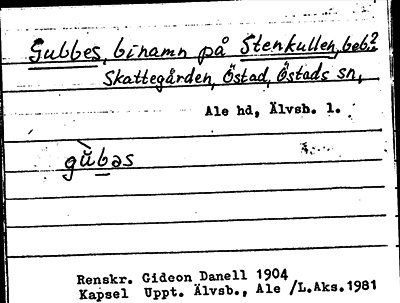 Gubbes, binamn på Stenkullen, beb.?
Skattegården, Östad, Östads sn,
Ale hd, Älvsb. l.
gùbas
Renskr. Gideon Danell 1904
Kapsel Uppt. Älvsb., Ale /L.Aks.1981